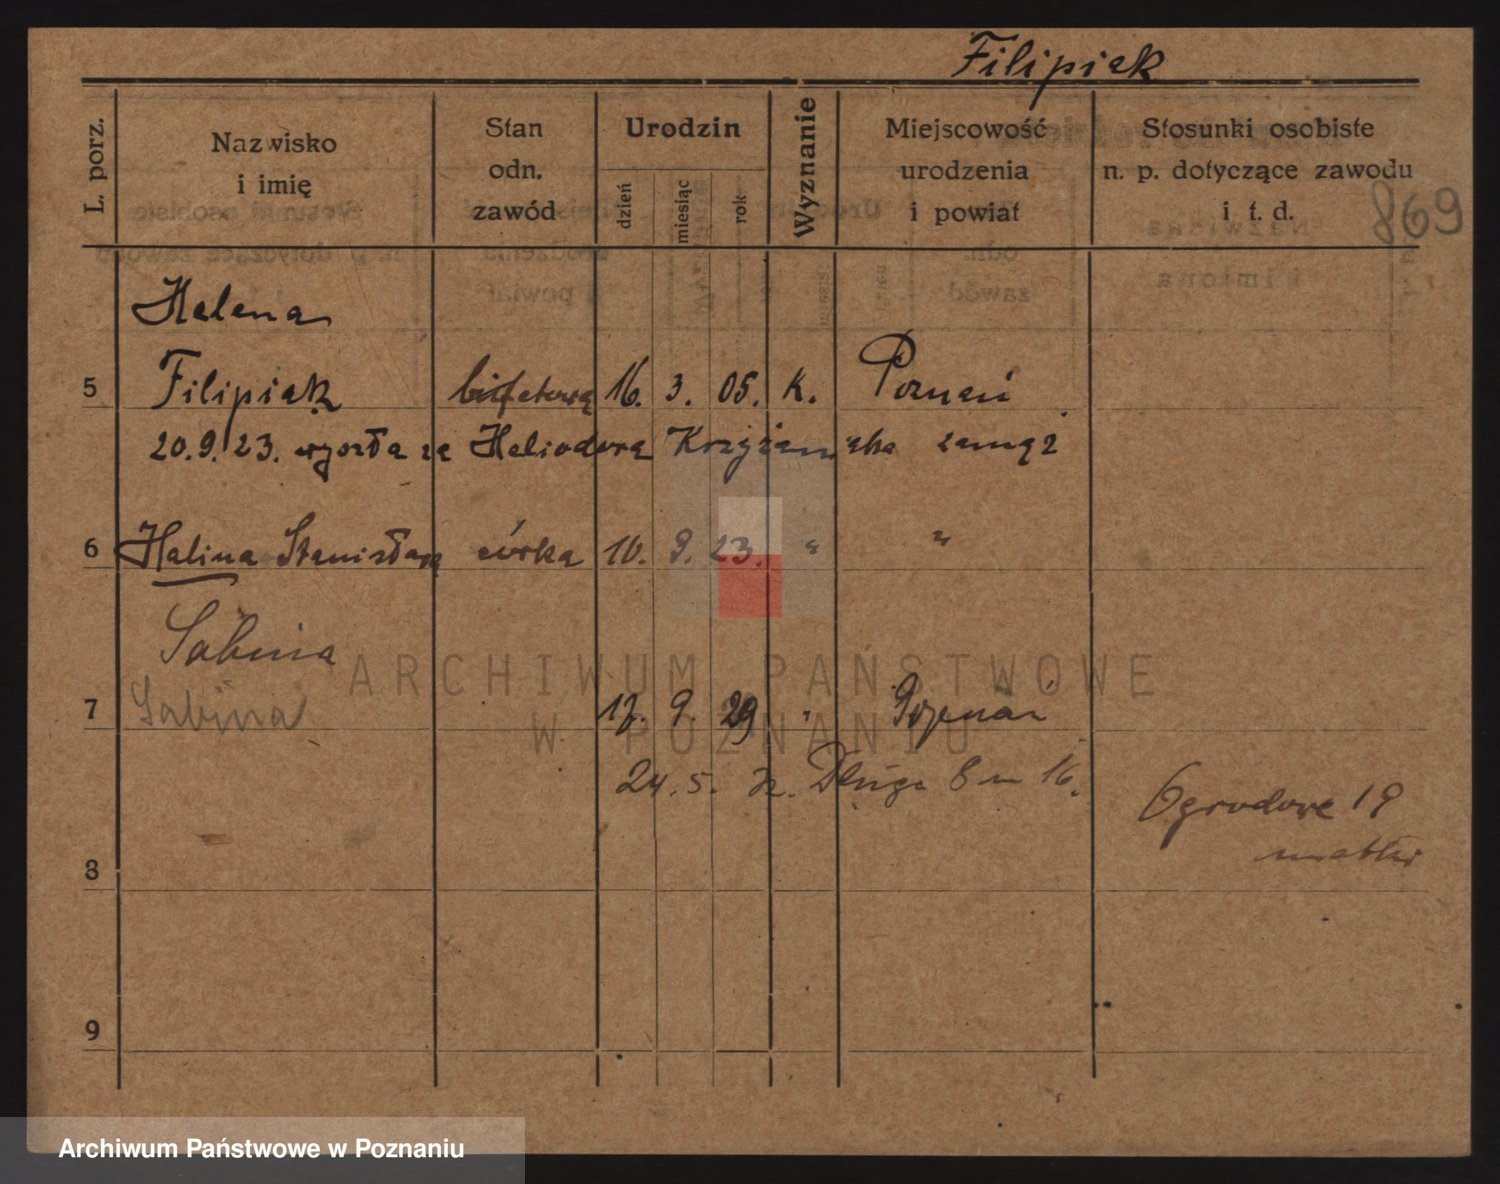 Filipiak
L. porz.
Nazwisko
i imię
Stan
odn.
zawód
Urodzin
dzień
miesiąc
rok
Wyznanie
Miejscowość
urodzenia
i powiat
Stosunki osobiste
n. p. dotyczące zawodu
i t. d.
869
Helena
5 Filipiak biletową 16. 3. 05. K. Poznań
20.9.23. wyszła za Heliodora Krzyżaniaka zamąż
6 Halina Stanisława córka 10. 9. 23. " "
Sabina
7 Sabina 17. 9. 29 " Poznań
24. 5. Długa 8 m 16.
Ogrodowa 19
8
9
ARCHIWUM PAŃSTWOWE
W POZNANIU
Archiwum Państwowe w Poznaniu